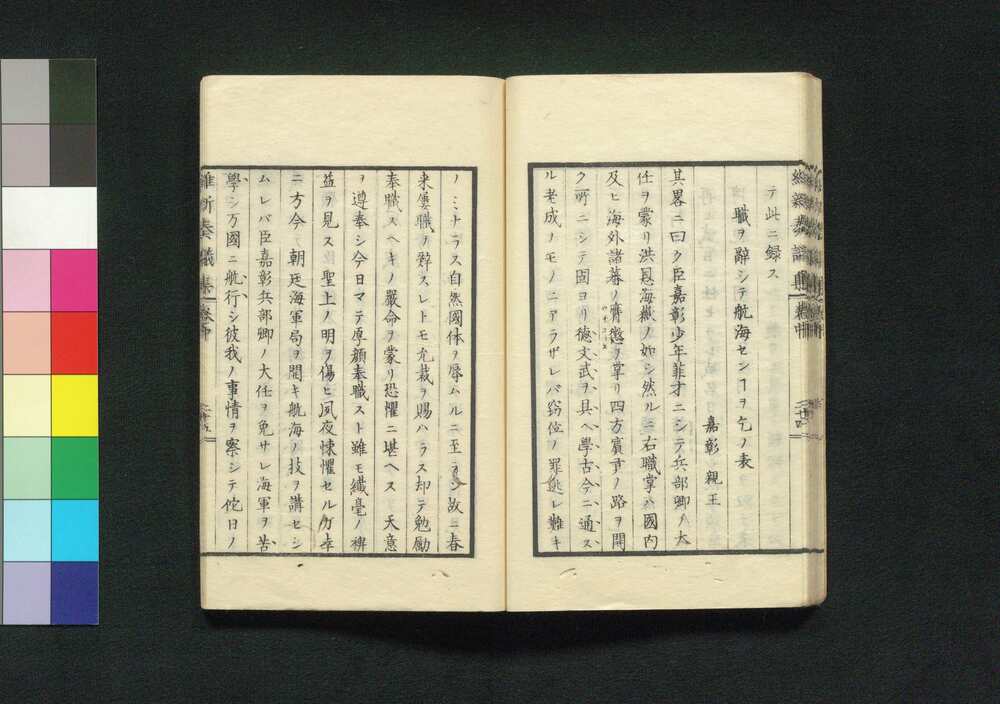 テ此ニ録ス
職ヲ辭シテ航海センヿヲ乞ノ表
嘉彰親王
其畧ニ曰ク臣嘉彰少年菲才ニシテ兵部卿ノ大
任ヲ蒙リ洪恩海嶽ノ如シ然ルニ右職掌ハ國内
及ヒ海外諸蕃ノ膺懲ヲ掌リ四方賓貢ノ路ヲ開
ク所ニシテ固ヨリ徳文武ヲ具ヘ學古今ニ通ス
ル老成ノモノニアラザレバ竊位ノ罪逃レ難キ
ノミナラス自然國体ヲ辱ムルニ至ラン故ニ春
来屢職ヲ辞スレトモ允裁ヲ賜ハラス却テ勉勵
奉職スヘキノ嚴命ヲ蒙リ恐懼ニ堪ヘス 天意
ヲ遵奉シ今日マテ厚顔奉職スト雖モ纎毫ノ裨
益ヲ見ス 聖上ノ明ヲ傷ヒ夙夜悚懼セル
ニ方今 朝廷海軍局ヲ開キ航海ノ技ヲ講セシ
ムレバ臣嘉彰兵部卿ノ大任ヲ免サレ海軍ヲ苦
學シ万國ニ航行シ彼我ノ事情ヲ察シテ佗日ノ
維新奏議集 巻中 廿五